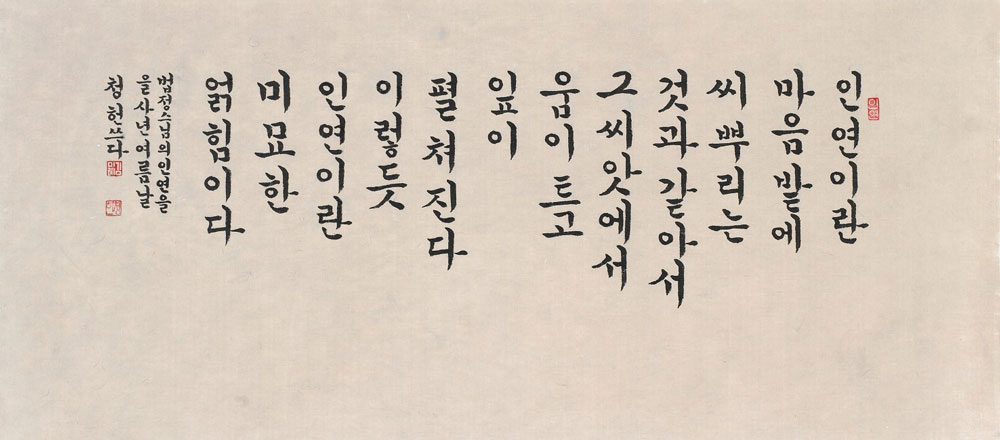 인연이란
마음밭에
씨뿌리는
것과 같아서
그 씨앗에서
움이 트고
잎이
펼쳐진다
이렇듯
인연이란
미묘한
얽힘이다
법정스님의 인연을
을사년 여름날
청헌 쓰다